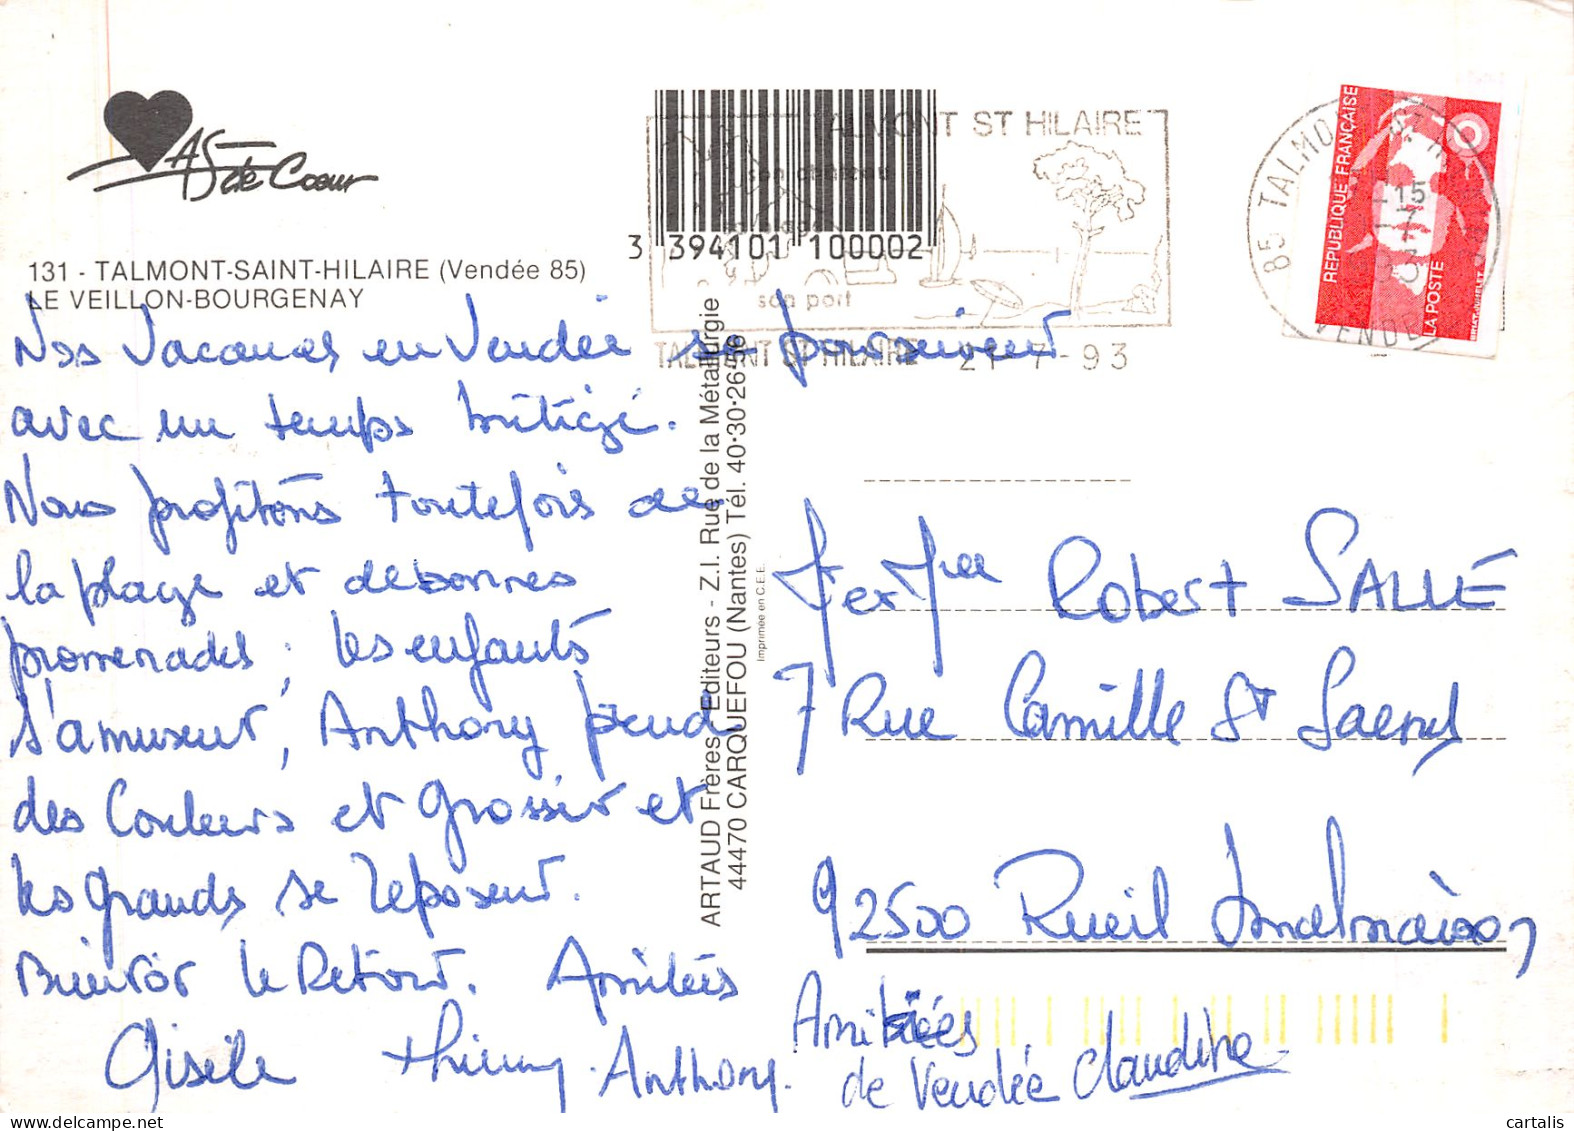 As de Coeur
131 - TALMONT-SAINT-HILAIRE (Vendée 85)
LE VEILLON-BOURGENAY
Nos Vacances en Vendée se poursuivent
avec un temps mitigé.
Nous profitons toutefois de
la plage et de bonnes
promenades; les enfants
s'amusent, Anthony prend
des Couleurs et Grossit et
les grands se reposent.
Bientôt le Retour. Amitiés
Gisèle Thierry. Anthony.
Amitiées
de Vendée Claudine
3 394101 100002
TALMONT ST HILAIRE
son chateau
son port
TALMONT ST HILAIRE 21-7-93
85 TALMONT ST H
15
VENDEE
REPUBLIQUE FRANÇAISE
LA POSTE
ARTAUD Frères Editeurs - Z.I. Rue de la Métallurgie
44470 CARQUEFOU (Nantes) Tél. 40·30·26·56
Imprimée en C.E.E.
Robert SALLE
7 Rue Camille St Saens
92500 Rueil Malmaison
cartalis